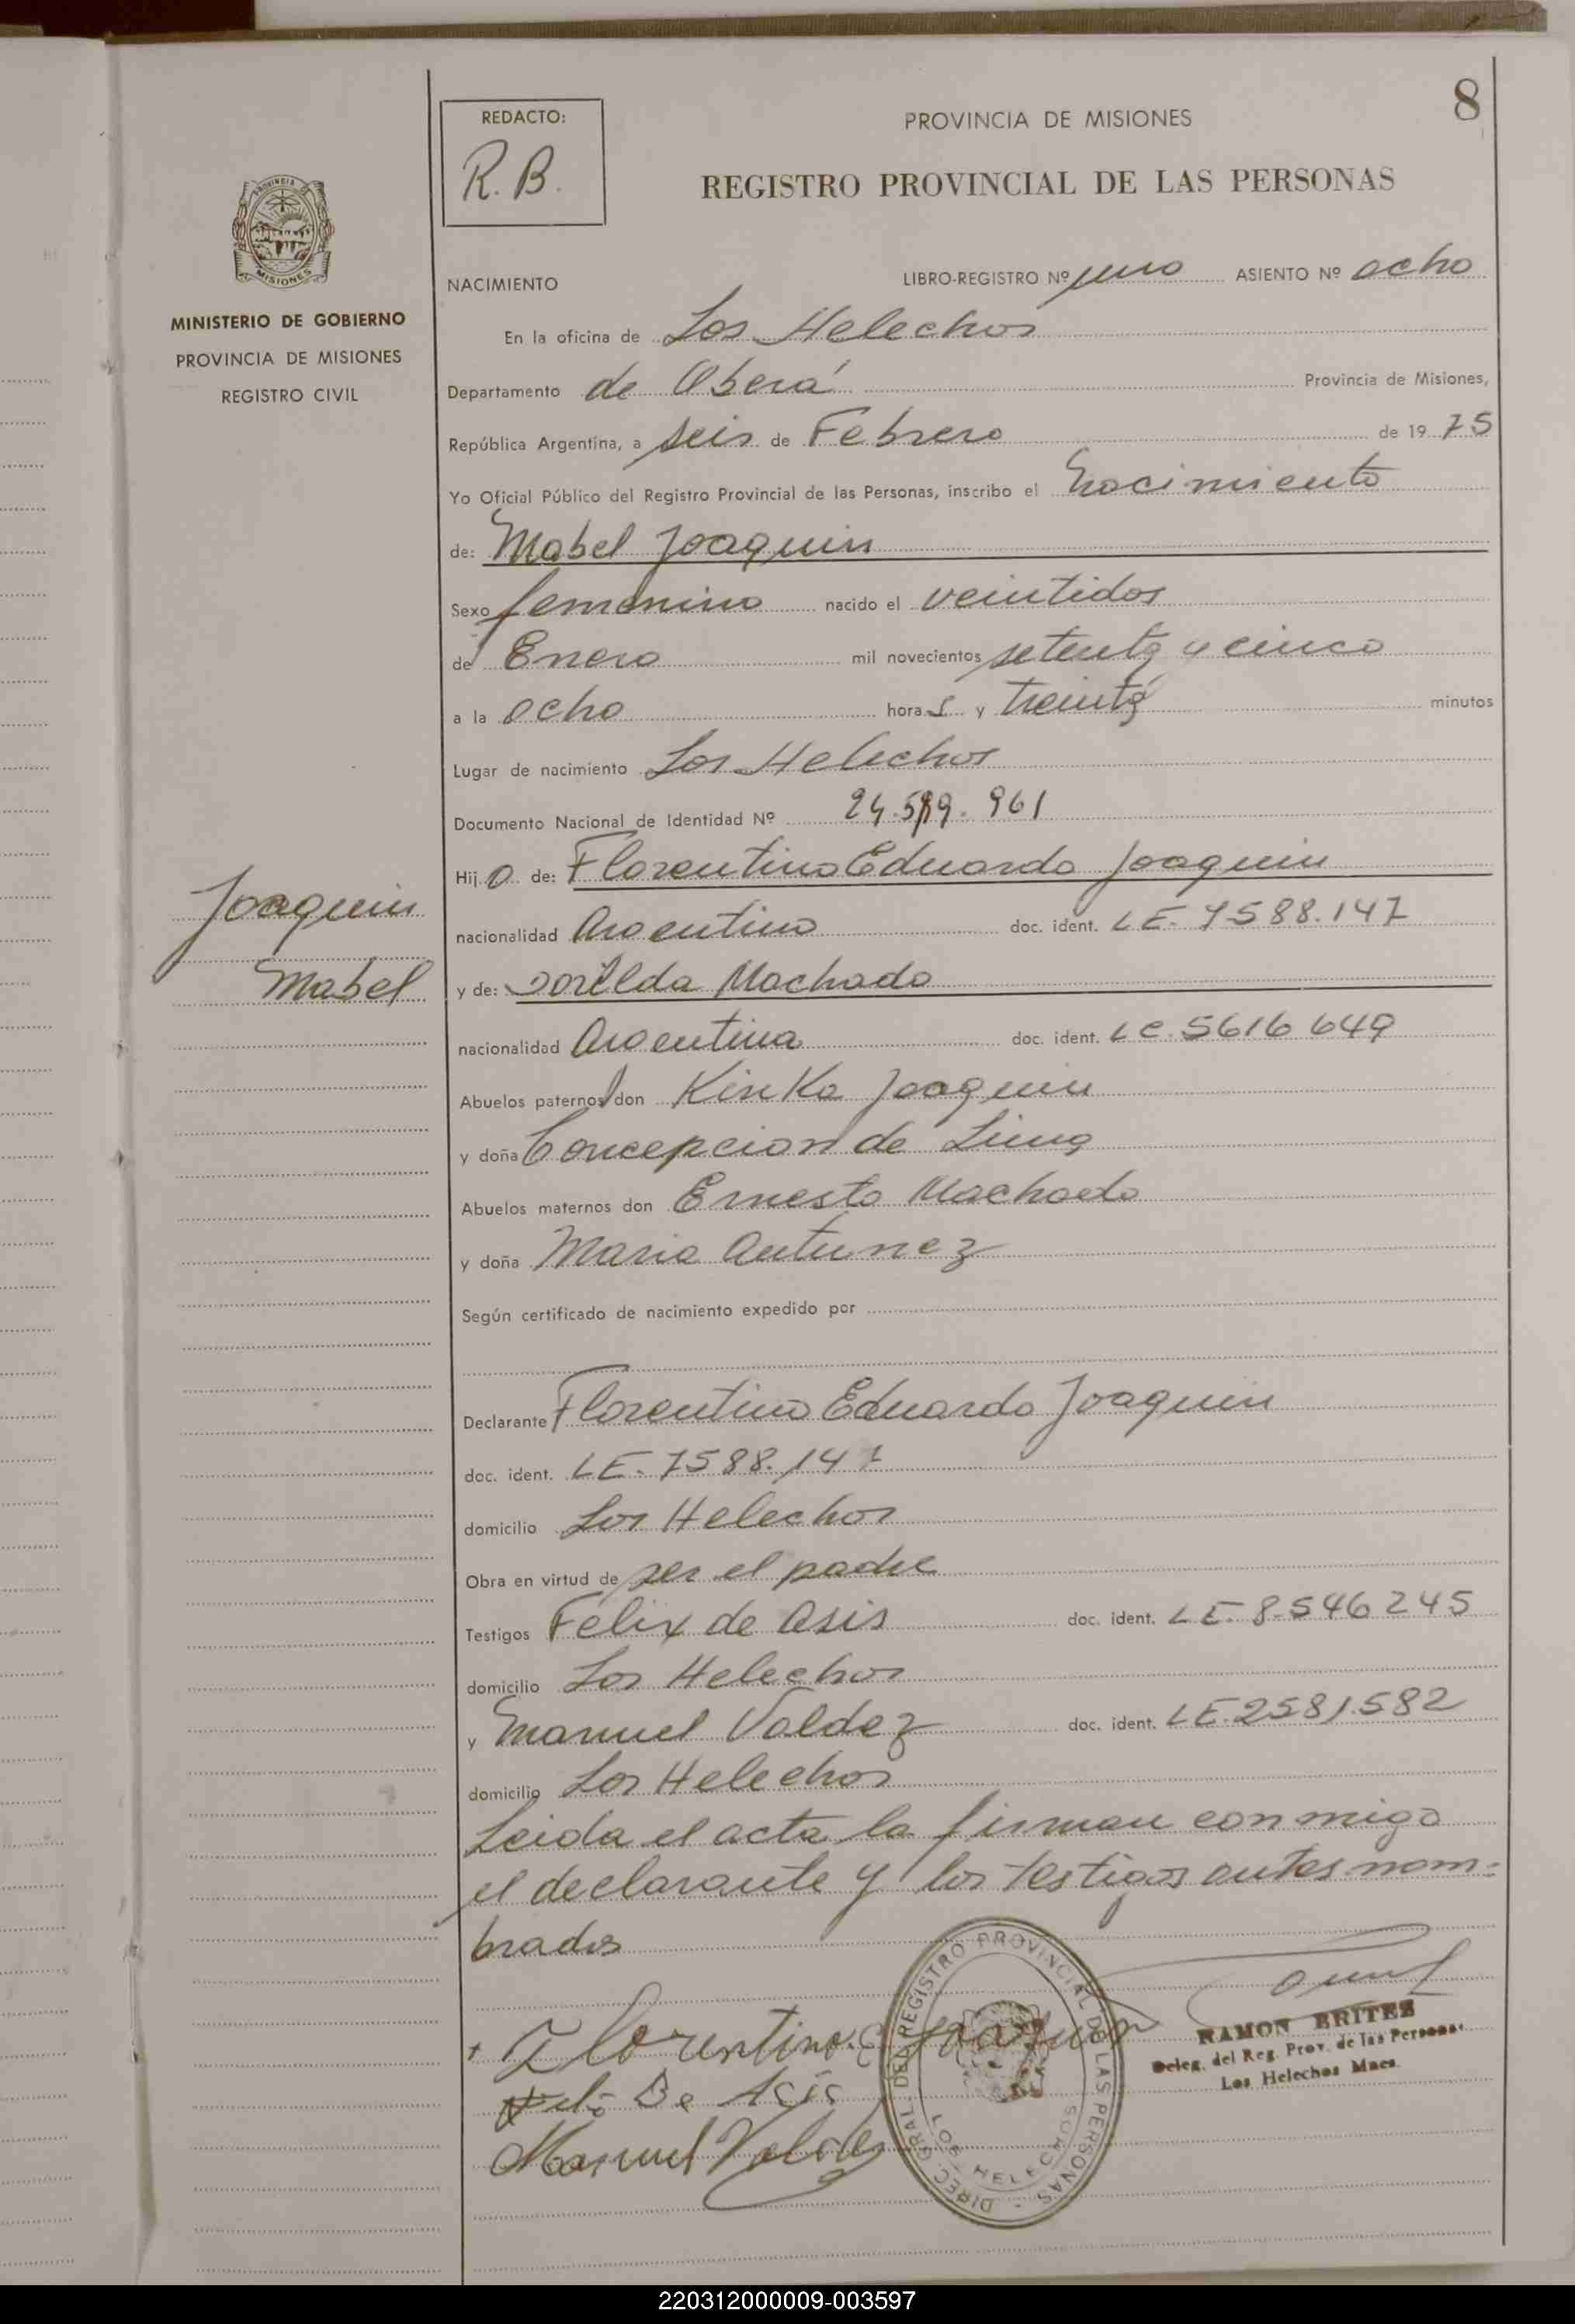 8
REDACTO:
R. B.
PROVINCIA DE MISIONES
REGISTRO PROVINCIAL DE LAS PERSONAS
PROVINCIA DE
MISIONES
MINISTERIO DE GOBIERNO
PROVINCIA DE MISIONES
REGISTRO CIVIL
NACIMIENTO LIBRO-REGISTRO Nº uno ASIENTO Nº ocho
En la oficina de Los Helechos
Departamento de Oberá Provincia de Misiones,
República Argentina, a seis de Febrero de 19 75
Yo Oficial Público del Registro Provincial de las Personas, inscribo el Nacimiento
de: Mabel Joaquin
Sexo femenino nacido el veintidos
de Enero mil novecientos setenta y cinco
a la ocho hora s y treinta minutos
Lugar de nacimiento Los Helechos
Documento Nacional de Identidad Nº
Hij o de: Florentino Eduardo Joaquin
nacionalidad Argentino doc. ident. LE. 7588.147
Joaquin
Mabel
y de: Machado
nacionalidad Argentina doc. ident. LC. 5616 649
Abuelos paternos don Kinka Joaquin
y doña Concepcion de Lima
Abuelos maternos don Ernesto Machado
y doña Maria Antunez
Según certificado de nacimiento expedido por
Declarante Florentino Eduardo Joaquin
doc. ident. LE. 7588.147
domicilio Los Helechos
Obra en virtud de ser el padre
Testigos Felix de Asis doc. ident. LE. 8.546 245
domicilio Los Helechos
y Manuel Valdez doc. ident. LE. 2581.582
domicilio Los Helechos
Leida el acta la firman conmigo
el declarante y los testigos antes nom=
brados
Florentino. E Joaquin
De Asis
Manuel Valdez
DIREC. GRAL. DEL REGISTRO PROVINCIAL DE LAS PERSONAS
LOS HELECHOS
RAMON BRITEZ
Deleg. del Reg. Prov. de las Personas
Los Helechos Mnes.
220312000009-003597